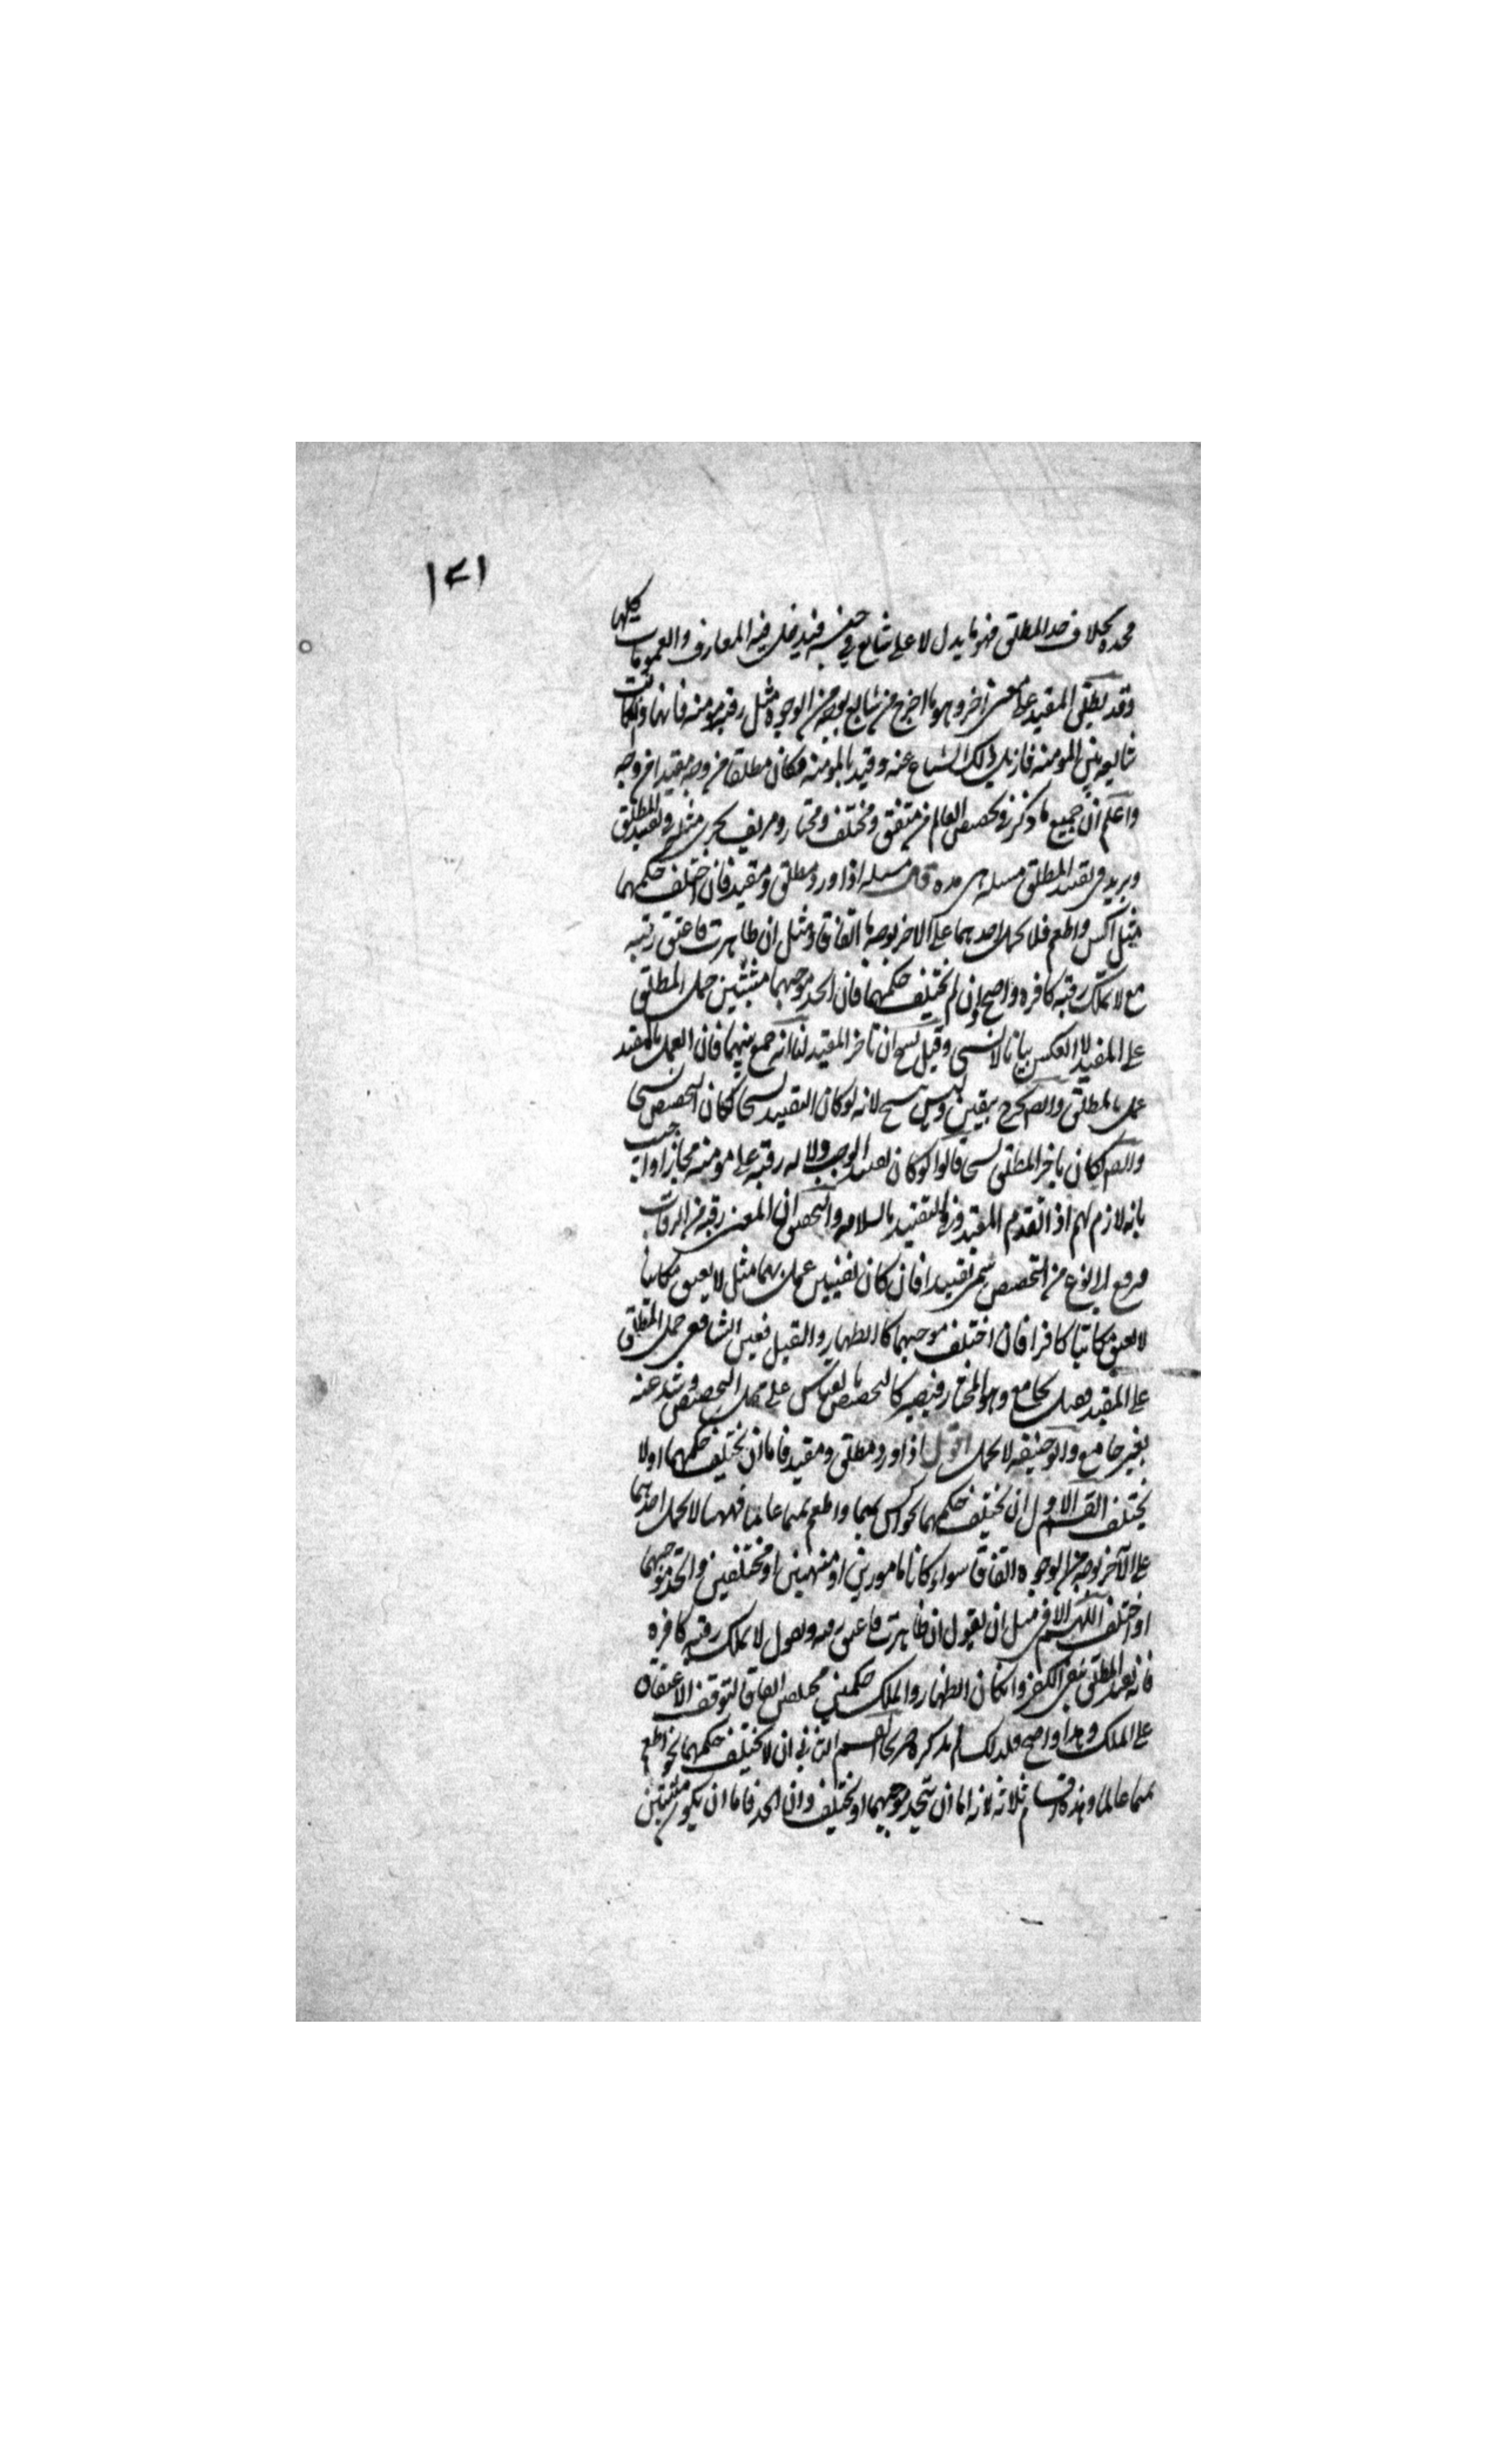 ١٣١
محده بخلاف حد المطلق فهو ما يدل لا على شايع في جنسه فيدخل فيه المعارف والعمومات كلها
وقد يطلق المقيد على معنى آخر وهو ما اخرج من شايع بوجه من الوجوه مثل رقبة مومنه فانها وان كانت
شايعه بين المومنه فازيل ذلك الشياع عنه وقيد بالمومنه فكان مطلقا من وجه مقيدا من وجه
واعلم ان جميع ما ذكر في تخصيص العام من متفق ومختلف ومختار ومزيف يجرى مثله في تقييد المطلق
ويزيد في تقييد المطلق مسله هى هذه قال مسله اذا ورد مطلق ومقيد فان اختلف حكمهما
مثل اكس واطعم فلا يحمل احدهما على الاخر بوجه ما اتفاقا ومثل ان ظاهرت فاعتق رقبه
مع لا تملك رقبه كافره واضح وان لم يختلف حكمهما فان اتحد موجبهما مثبتين حمل المطلق
على المقيد لا العكس بيانا لا نسخا وقيل نسخ ان تاخر المقيد لنا انه جمع بينهما فان العمل بالمقيد
عمل بالمطلق وايضا يخرج بيقين وليس بنسخ لانه لو كان التقييد نسخا لكان التخصيص نسخا
وايضا لكان تاخر المطلق نسخا قالوا لو كان تقييدا لوجب دلاله رقبه على مومنه مجازا واجيب
بانه لازم لهم اذا تقدم المقيد وفي التقييد بالسلامه والتحقيق ان المعنى رقبة من الرقاب
فرجع الى نوع من التخصيص سمى تقييدا فان كان نفيين عمل بهما مثل لا يعتق مكاتبا
لا يعتق مكاتبا كافرا فان اختلف موجبهما كالظهار والقتل فعن الشافعى حمل المطلق
على المقيد فقيل بجامع وهو المختار فيصير كالتخصيص بالقياس على محل التخصيص وشذ عنه
بغير جامع وابو حنيفه لا يحمل اقول اذا ورد مطلق ومقيد فاما ان يختلف حكمهما اولا
يختلف القسم الاول ان يختلف حكمهما نحو اكس تميما واطعم تميما عالما فههنا لا يحمل احدهما
على الآخر بوجه من الوجوه اتفاقا سواء كانا مامورين او منهيين او مختلفين واتحد موجبهما
او اختلف اللهم الا في مثل ان يقول ان ظاهرت فاعتق رقبه ويقول لا تملك رقبه كافره
فانه يقيد المطلق بنفى الكفر وان كان الظهار والملك حكمين مختلفين اتفاقا لتوقف الاعتاق
على الملك وهذا واضح فلذلك لم يذكره صريحا القسم الثانى ان لا يختلف حكمهما نحو اطعم
تميما عالما وهذه اقسام ثلاثه لانه اما ان يتحد موجبهما او يختلف وان اتحد فاما ان يكون مثبتين